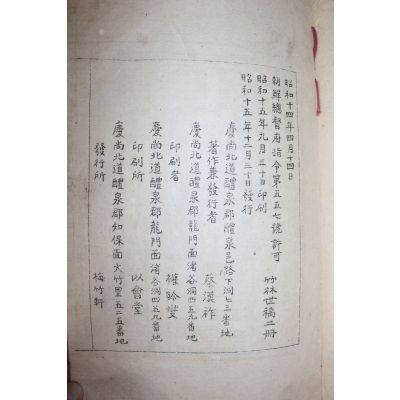 昭和十四年四月十四日
朝鮮總督府指令第五五七號許可
竹林世稿二冊
昭和十五年九月三十日印刷
昭和十五年十二月三十日發行
慶尚北道醴泉郡醴泉邑路下洞七三番地
著作兼發行者
蔡漢祚
慶尚北道醴泉郡龍門面渚谷洞四五九番地
印刷者
權畛燮
慶尚北道醴泉郡龍門面渚谷洞四五九番地
印刷所
以會堂
慶尚北道醴泉郡知保面大竹里五二五番地
發行所
梅竹軒